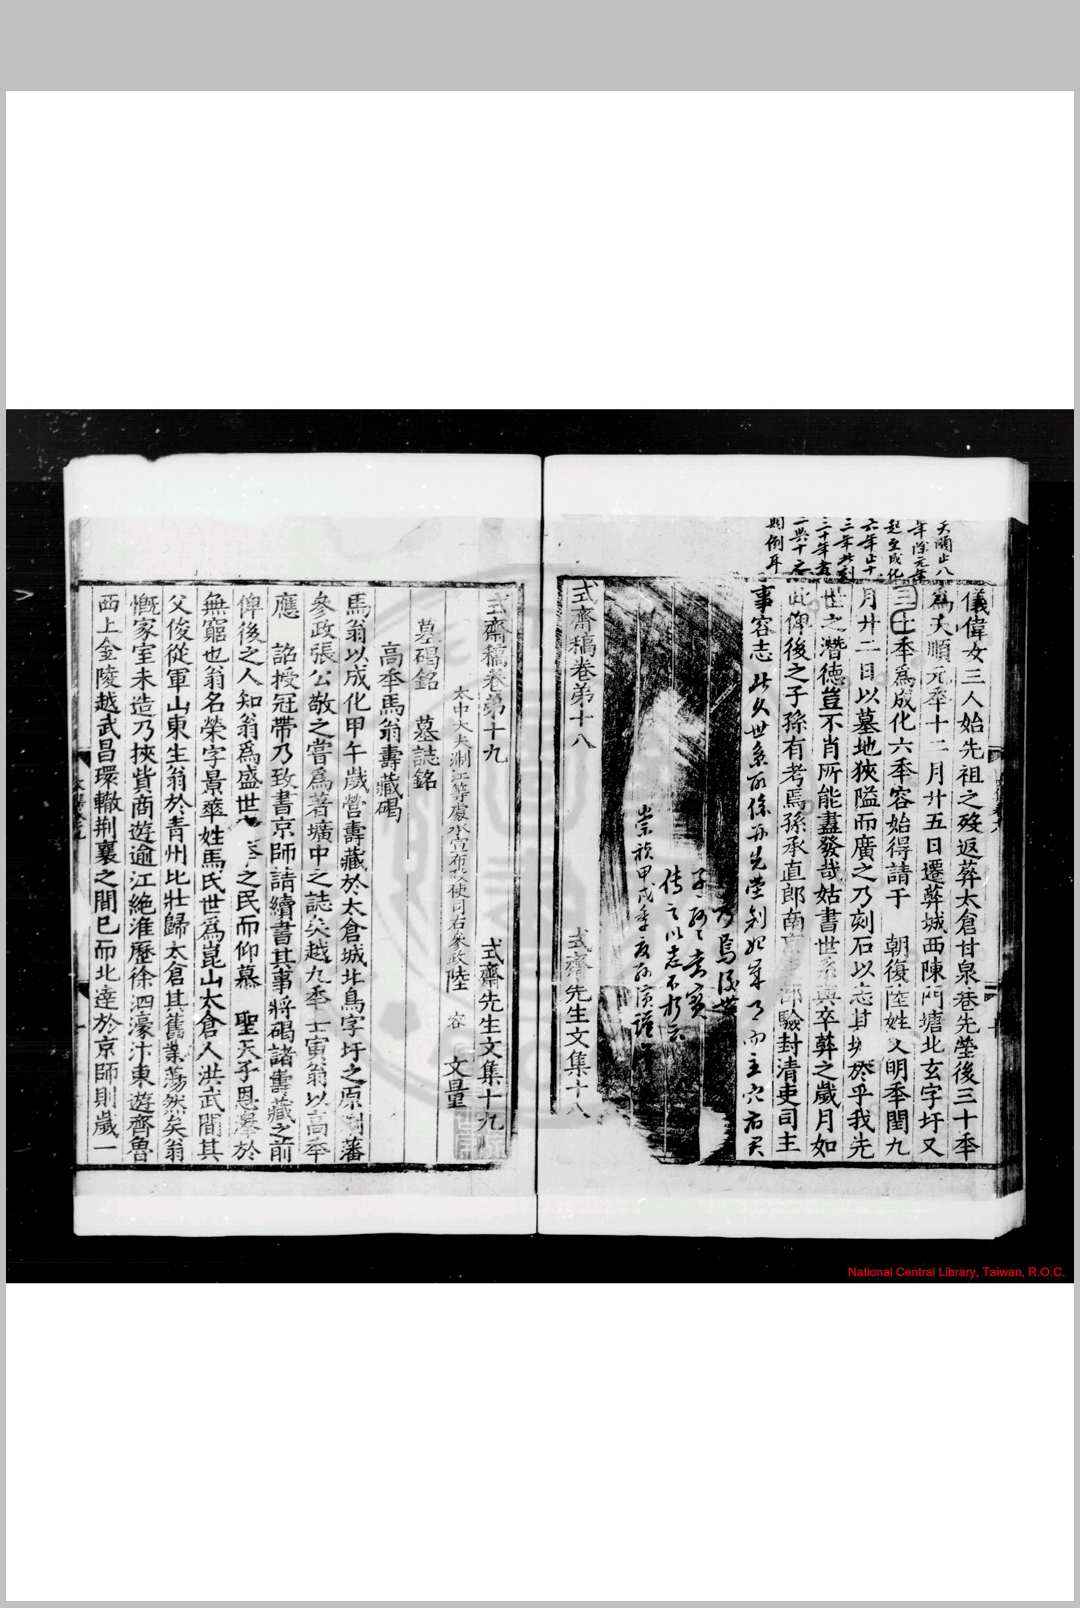 天順止八
年除元年
起至成化
六年止十
三年共刻
三十年蓋
二與十之
則例耳
儀偉女三人始先祖之歿返葬太倉甘泉巷先塋後三十年
為天順元年十二月廿五日遷葬城西陳門塘北玄字圩又
三十年為成化六年容始得請于 朝復陸姓又明年閏九
月廿二日以墓地狹隘而廣之乃刻石以志其 於乎我先
世之潛德豈不肖所能盡發哉姑書世系與卒葬之歲月如
此俾後之子孫有考焉孫承直郎南京 部驗封清吏司主
事容志 此父世系所係
崇禎甲戌年
式齋稿卷第十八 式齋先生文集十八
式齋稿卷第十九 式齋先生文集十九
太中大夫浙江等處承宣布政使司右參政陸 容 文量
墓碣銘 墓誌銘
高年馬翁壽藏碣
馬翁以成化甲午歲營壽藏於太倉城北鳥字圩之原浙藩
參政張公敬之嘗為著壙中之誌矣越九年壬寅翁以高年
應 詔授冠帶乃致書京師請續書其事將碣諸壽藏之前
俾後之人知翁為盛世 之民而仰慕 聖天子恩澤於
無窮也翁名榮字景華姓馬氏世為崑山太倉人洪武間其
父俊從軍山東生翁於青州比壯歸太倉其舊業蕩然矣翁
慨家室未造乃挾貲商遊逾江絕淮歷徐泗濠汴東遊齊魯
西上金陵越武昌環轍荊襄之間已而北達於京師則歲一
National Central Library, Taiwan, R.O.C.